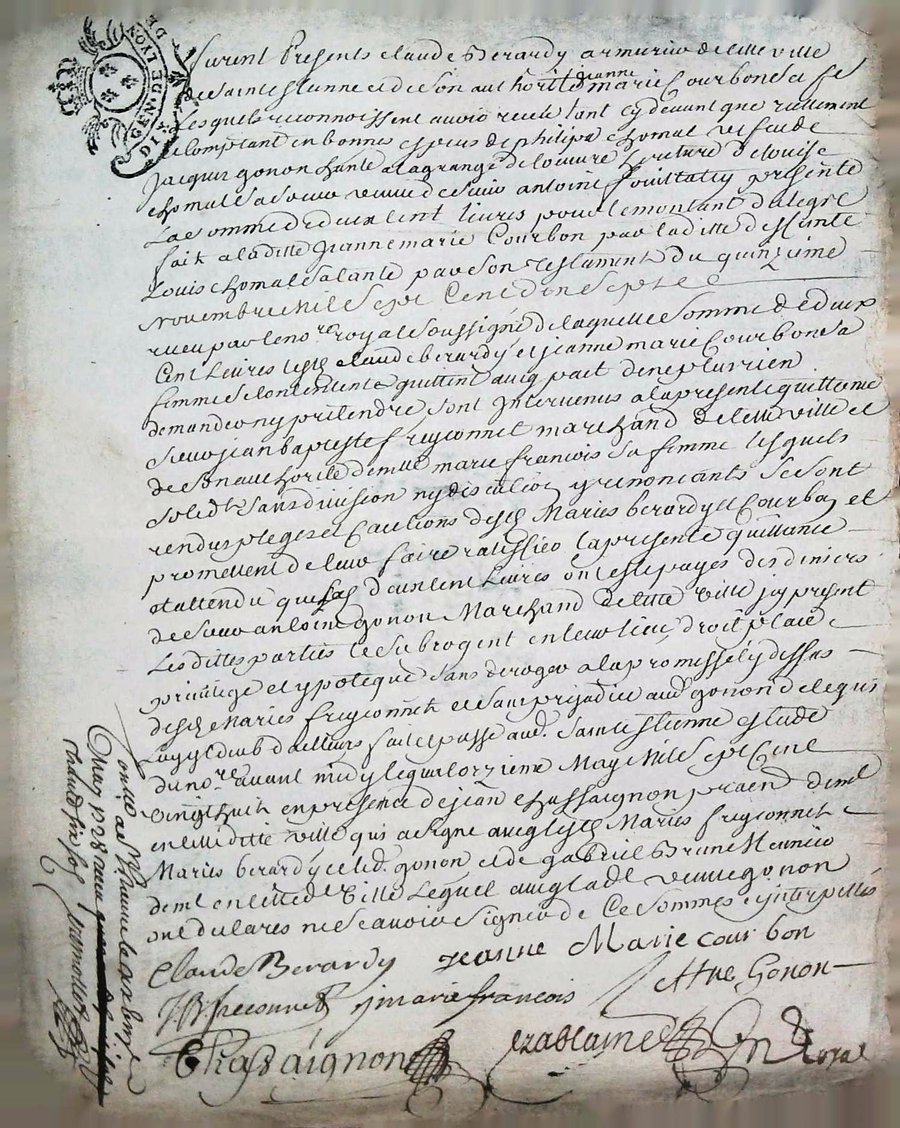 DE LYON
GEN
DE LA
furent Presents claude Berardy armurier de cette ville
de Saint estienne et de Son authorité jeanne marie Courbon Sa fe
Lesquels reconnoissent avoir receu tant cy devant que reellement
comptant en bonnes especes de philipa chomat vefve de
Jacques gonon
chomat Sa Soeur veuve de Sieur antoine presente
La Somme de deux cent livres pour le montant du legat
fait a laditte Jeanne marie Courbon par laditte deffunte
Louise chomat Sa tante par Son testament du quinzieme
novembre mil Sept Cent dix Sept
receu par le no.re royal Soussigné de laquelle Somme de deux
Cent Livres lesd claude berardy et jeanne marie Courbon Sa
femme Se contentent quittent avec pact de ne plus rien
demander ny pretendre Sont Intervenus a la presente quittance
Sieur jean bapteste freyconnet marchand de cette ville et
de Son authorité dem.lle marie francois Sa femme lesquels
Solid.t Sans division ny discution y renoncants Se Sont
rendus pleges et Cautions desd Maries berardy et Courbon et
promettent de leur faire ratiffier la presente quittance
et attendu que les d deux cent Livres ont este payes des deniers
de Sieur antoine gonon Marchand de cette ville icy present
Les dittes parties le Subrogent en leur lieu, droit place
privilege et ypoteque Sans deroger a la promesse cy dessus
desd Maries freyconnet et Sans prejudice aud gonon de ce qui
Luy est deub d'ailleurs fait et passé aud. Saint estienne estude
du no.re avant midy le quatorzieme May Mil Sept Cent
vingt huit en presence de jean chassaignon praen dem.t
en cette ditte ville qui a signe avec lesd Maries freyconnet
Maries berardy et led. gonon et de gabriel Brunet
dem.t en cette d.e ville Lequel avec lad veuve gonon
ont declares ne Scavoir Signer de Ce Sommes et interpellés
Claude Berardy jeanne Marie courbon
JB freconnet marie francois Attne Gonon
Chasaignon ezablaine Nre Royal
may 1728 receu